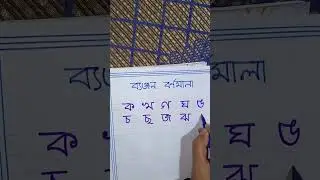 ব্যঞ্জন বর্ণমালা
ক খ গ ঘ ঙ
চ ছ জ ঝ